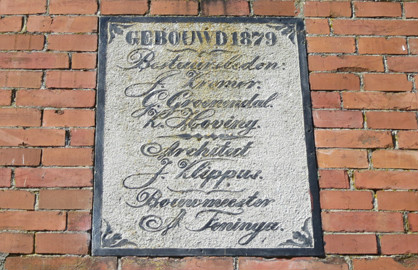 GEBOUWD 1879
Bestuursleden:
J. Kremer.
G. Groenendal.
K. Hoving.
Architect
J. Klippus.
Bouwmeester
A. Teninga.